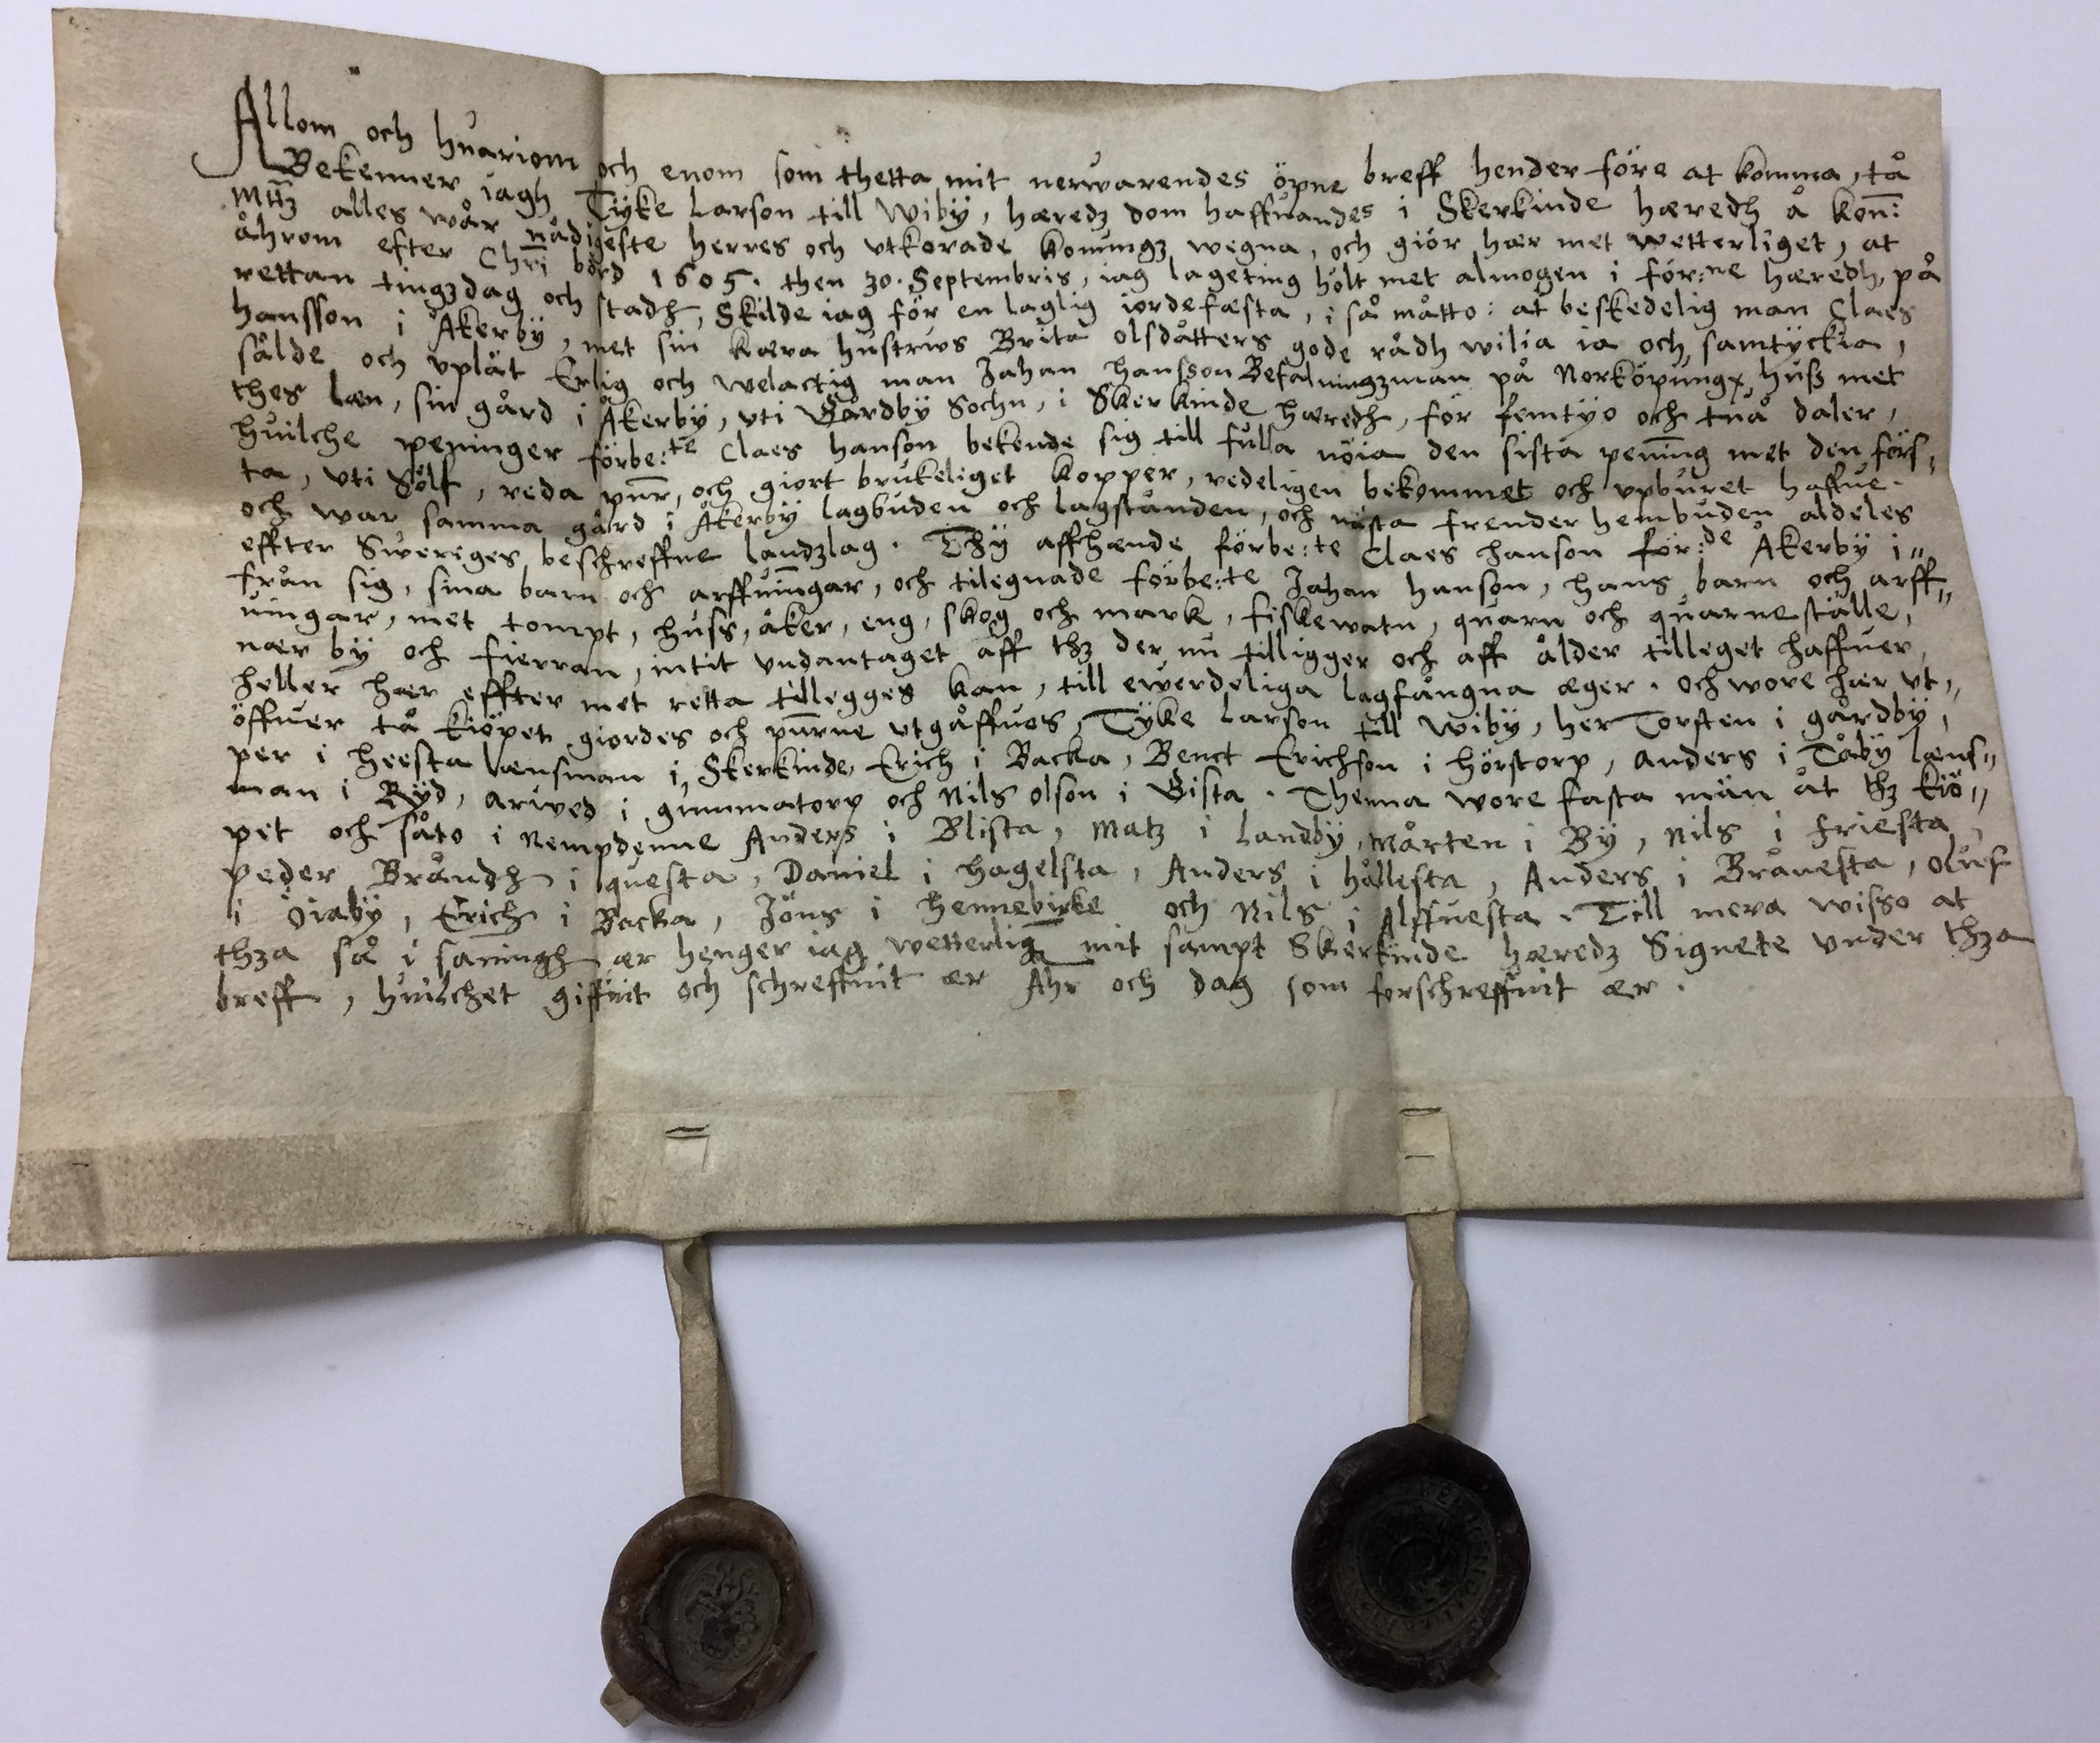 Allom och huariom och enom som thetta mit nerwarendes öpne breff hender före at komma, tå
Bekenner iagh Tÿke Larson till Wibÿ, hæredz dom haffuandes i Skerkinde hæredh å kon:
Mttz alles wår nådigeste herres och vtkorade konungz wegna, och giör hær met wetterliget, at
åhrom efter Chri börd 1605. then 30. Septembris, iag lageting hölt met almogen i för:ne hæredh, på
rettan tingzdag och stadh, Skilde iag för en laglig iordefæsta, i så måtto: at beskedelig man Claes
hansson i Åkerbÿ, met sin kæra hustrws Brita olsdåtters gode rådh wilia ia och samtÿckia,
sålde och vplät Erlig och welactig man Jahan hansson Befalningzman på Norköpungx huss met
thes læn, sin gård i Åkerbÿ, vti Gårdbÿ Sochn, i Skerkinde hæredh, för femtÿo och tuå daler,
huilche peninger förbe:te Claes hanson bekende sig till fulla nöia den sista pening met den förs,,
ta, vti Sölf, reda pnr, och giort brukeliget kopper, redeligen bekommet och vpburet haffue.
och war samma gård i Åkerbÿ lagbuden och lagstånden, och næsta frender hembuden aldeles
effter Swereges beschreffne landzlag. Thÿ affhænde förbe:te Claes hanson för:de Åkerbÿ i,,
från sig, sina barn och arffuingar, och tilegnade förbe:te Jahan hanson, hans barn och arff,,
uingar, met tompt, huss, åker, eng, skog och mark, fiskewatn, quarn och quarneställe,
nær by och fierran, intit vndantaget aff thz der nu tilligger och aff ålder tilleget haffuer
heller hær effter met retta tillegges kan, till ewerdeliga lagfångna æger. och wore hær vt,,
öffuer tå kiöpet giordes och pnrne vtgåffues, Tÿke Larson till Wibÿ, her Torsten i gårdbÿ,
per i heesta lænsman i Skerkinde, Erich i Backa, Benct Erichson i hörstorp, anders i Tåbÿ læns,,
man i Rÿd, arfved i gummatorp och Nils olson i Gista. Thenna wore fasta män åt thz kiö,,
pet och såto i Nempdenne Anders i Blista, Matz i Landbÿ, Mårten i Bÿ, Nils i friesta,
peder Bråndh i questa, Daniel i hagelsta, Anders i hållesta, Anders i Bråuesta, oluf
i Öiabÿ, Erich i Backa, Jöns i hennebirke och Nils i Alffuesta. Till mera wisso at
thza så i saningh ær henger iag wetterlig mit sampt Skerkinde hæredz Signete vnder thza
breff, huilchet giffuit och schreffuit ær Åhr och dag som forschreffuit ær.